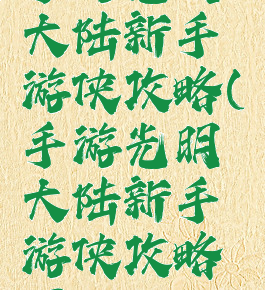 大陆新手
游侠攻略(
手游光明
大陆新手
游侠攻略